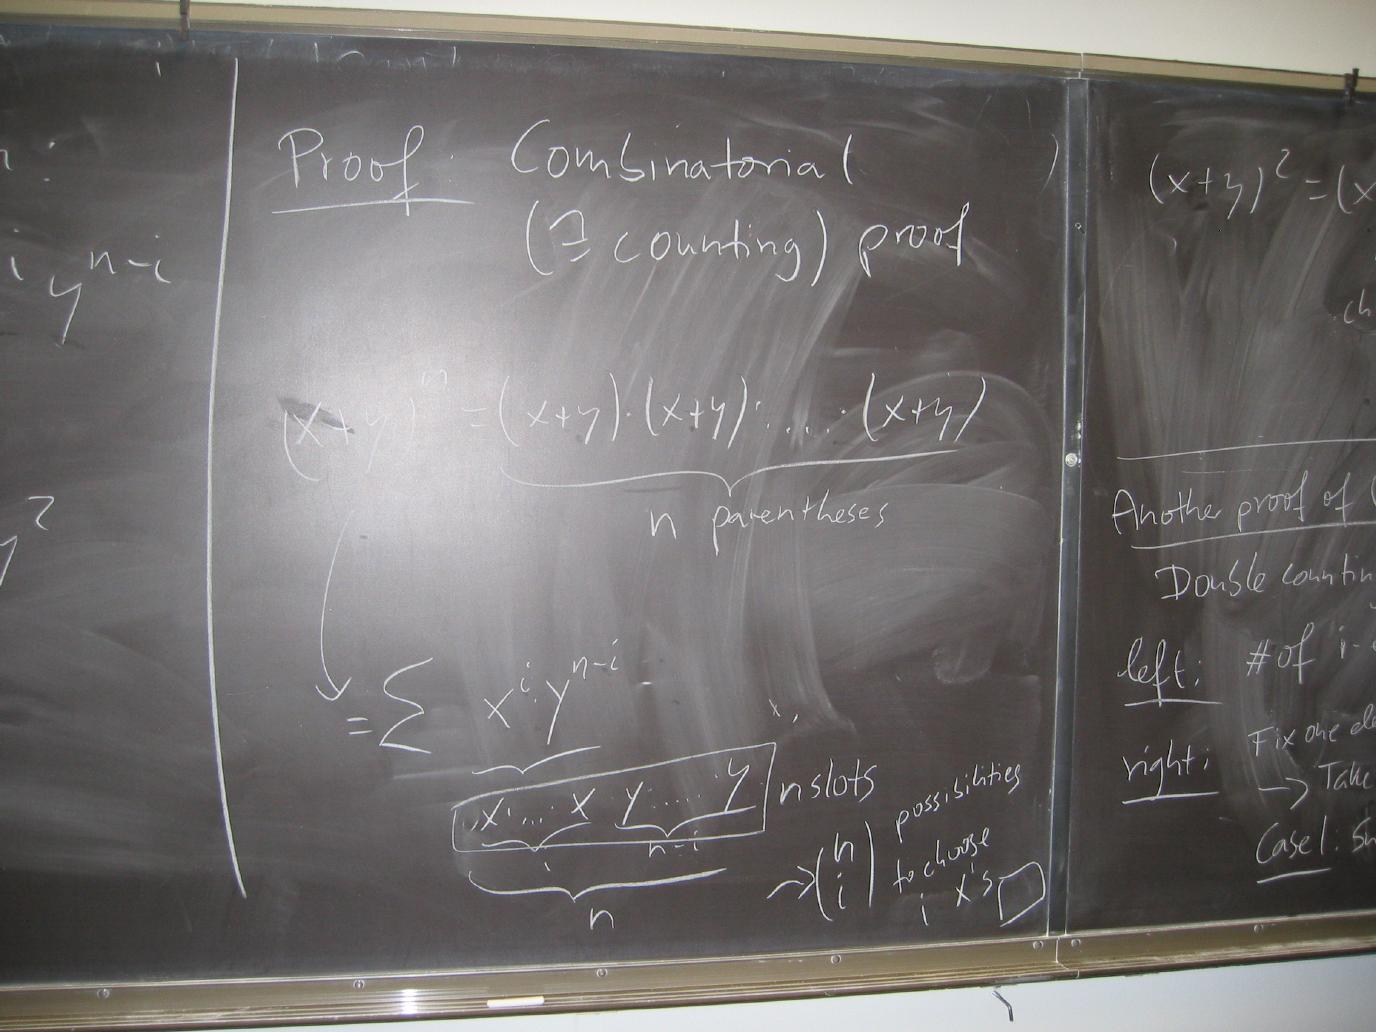 i y^{n-i}
2
Proof: Combinatorial ( )
(∃ counting) proof
(x+y)^n = (x+y)·(x+y)·....·(x+y)
n parentheses
= Σ x^i · y^{n-i}
x ... x y ..... y n slots
i n-i
n
→ (n i) possibilities
to choose
i x's □
(x+y)^2 = (x
ch
Another proof of (
Double countin
left: # of i-
right: Fix one ele
→ Take
Case 1: Sh